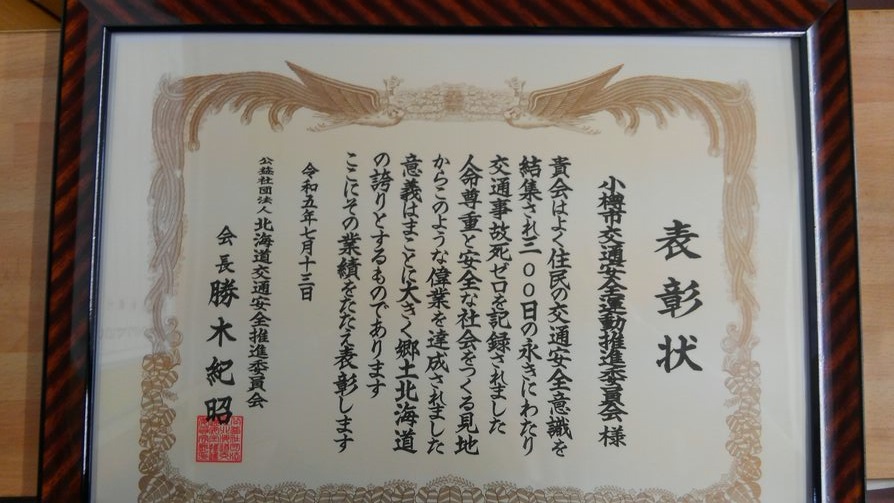 表彰状
小樽市交通安全運動推進委員会 様
貴会はよく住民の交通安全意識を
結集され三〇〇日の永きにわたり
交通事故死ゼロを記録されました
人命尊重と安全な社会をつくる見地
からこのような偉業を達成されました
意義はまことに大きく郷土北海道
の誇りとするものであります
ここにその業績をたたえ表彰します
令和五年七月十三日
公益社団法人 北海道交通安全推進委員会
会長 勝木紀昭